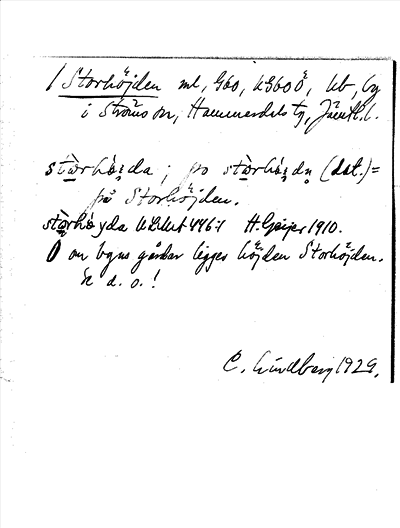 1 Storhöjden ml, G60, kG60Ö, kb, by
i Ströms sn, Hammerdals tg, Jämtl. l.
stòrhö̀i̯da ; po stòrhö́i̯dn̥ (dat.) =
på Storhöjden.
stòrhöyda ULMA 446:1 H. Geijer 1910.
Ö om byns gårdar ligger höjden Storhöjden.
Se d. o.!
C. Lindberg 1929.